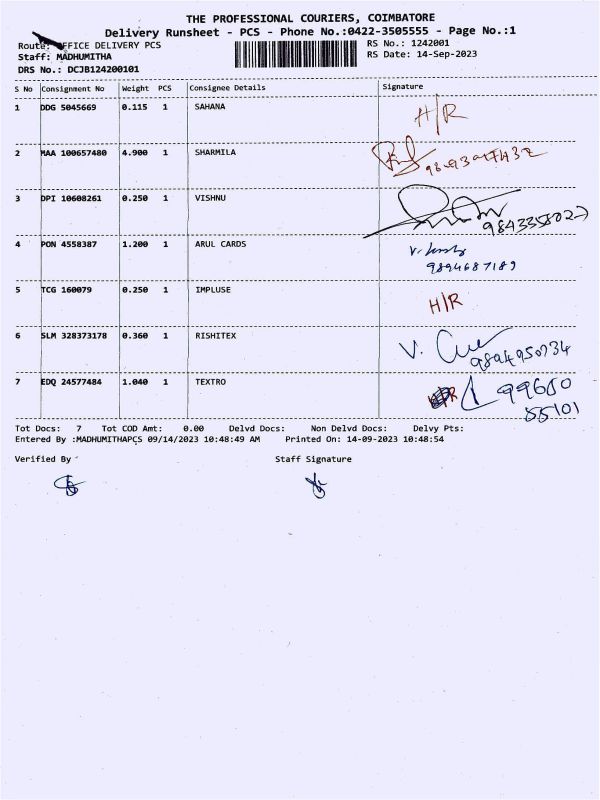 THE PROFESSIONAL COURIERS, COIMBATORE
Delivery Runsheet - PCS - Phone No.:0422-3505555 - Page No.:1
Route: OFFICE DELIVERY PCS
RS No.: 1242001
Staff: MADHUMITHA
RS Date: 14-Sep-2023
DRS No.: DCJB124200101
S No Consignment No Weight PCS Consignee Details Signature
1 DDG 5045669 0.115 1 SAHANA H/R
2 MAA 100657480 4.900 1 SHARMILA
3 DPI 10608261 0.250 1 VISHNU
4 PON 4558387 1.200 1 ARUL CARDS
9894687189
5 TCG 160079 0.250 1 IMPLUSE H/R
6 SLM 328373178 0.360 1 RISHITEX V.
9894950734
7 EDQ 24577484 1.040 1 TEXTRO 99650
55101
Tot Docs: 7 Tot COD Amt: 0.00 Delvd Docs: Non Delvd Docs: Delvy Pts:
Entered By :MADHUMITHAPCS 09/14/2023 10:48:49 AM Printed On: 14-09-2023 10:48:54
Verified By Staff Signature